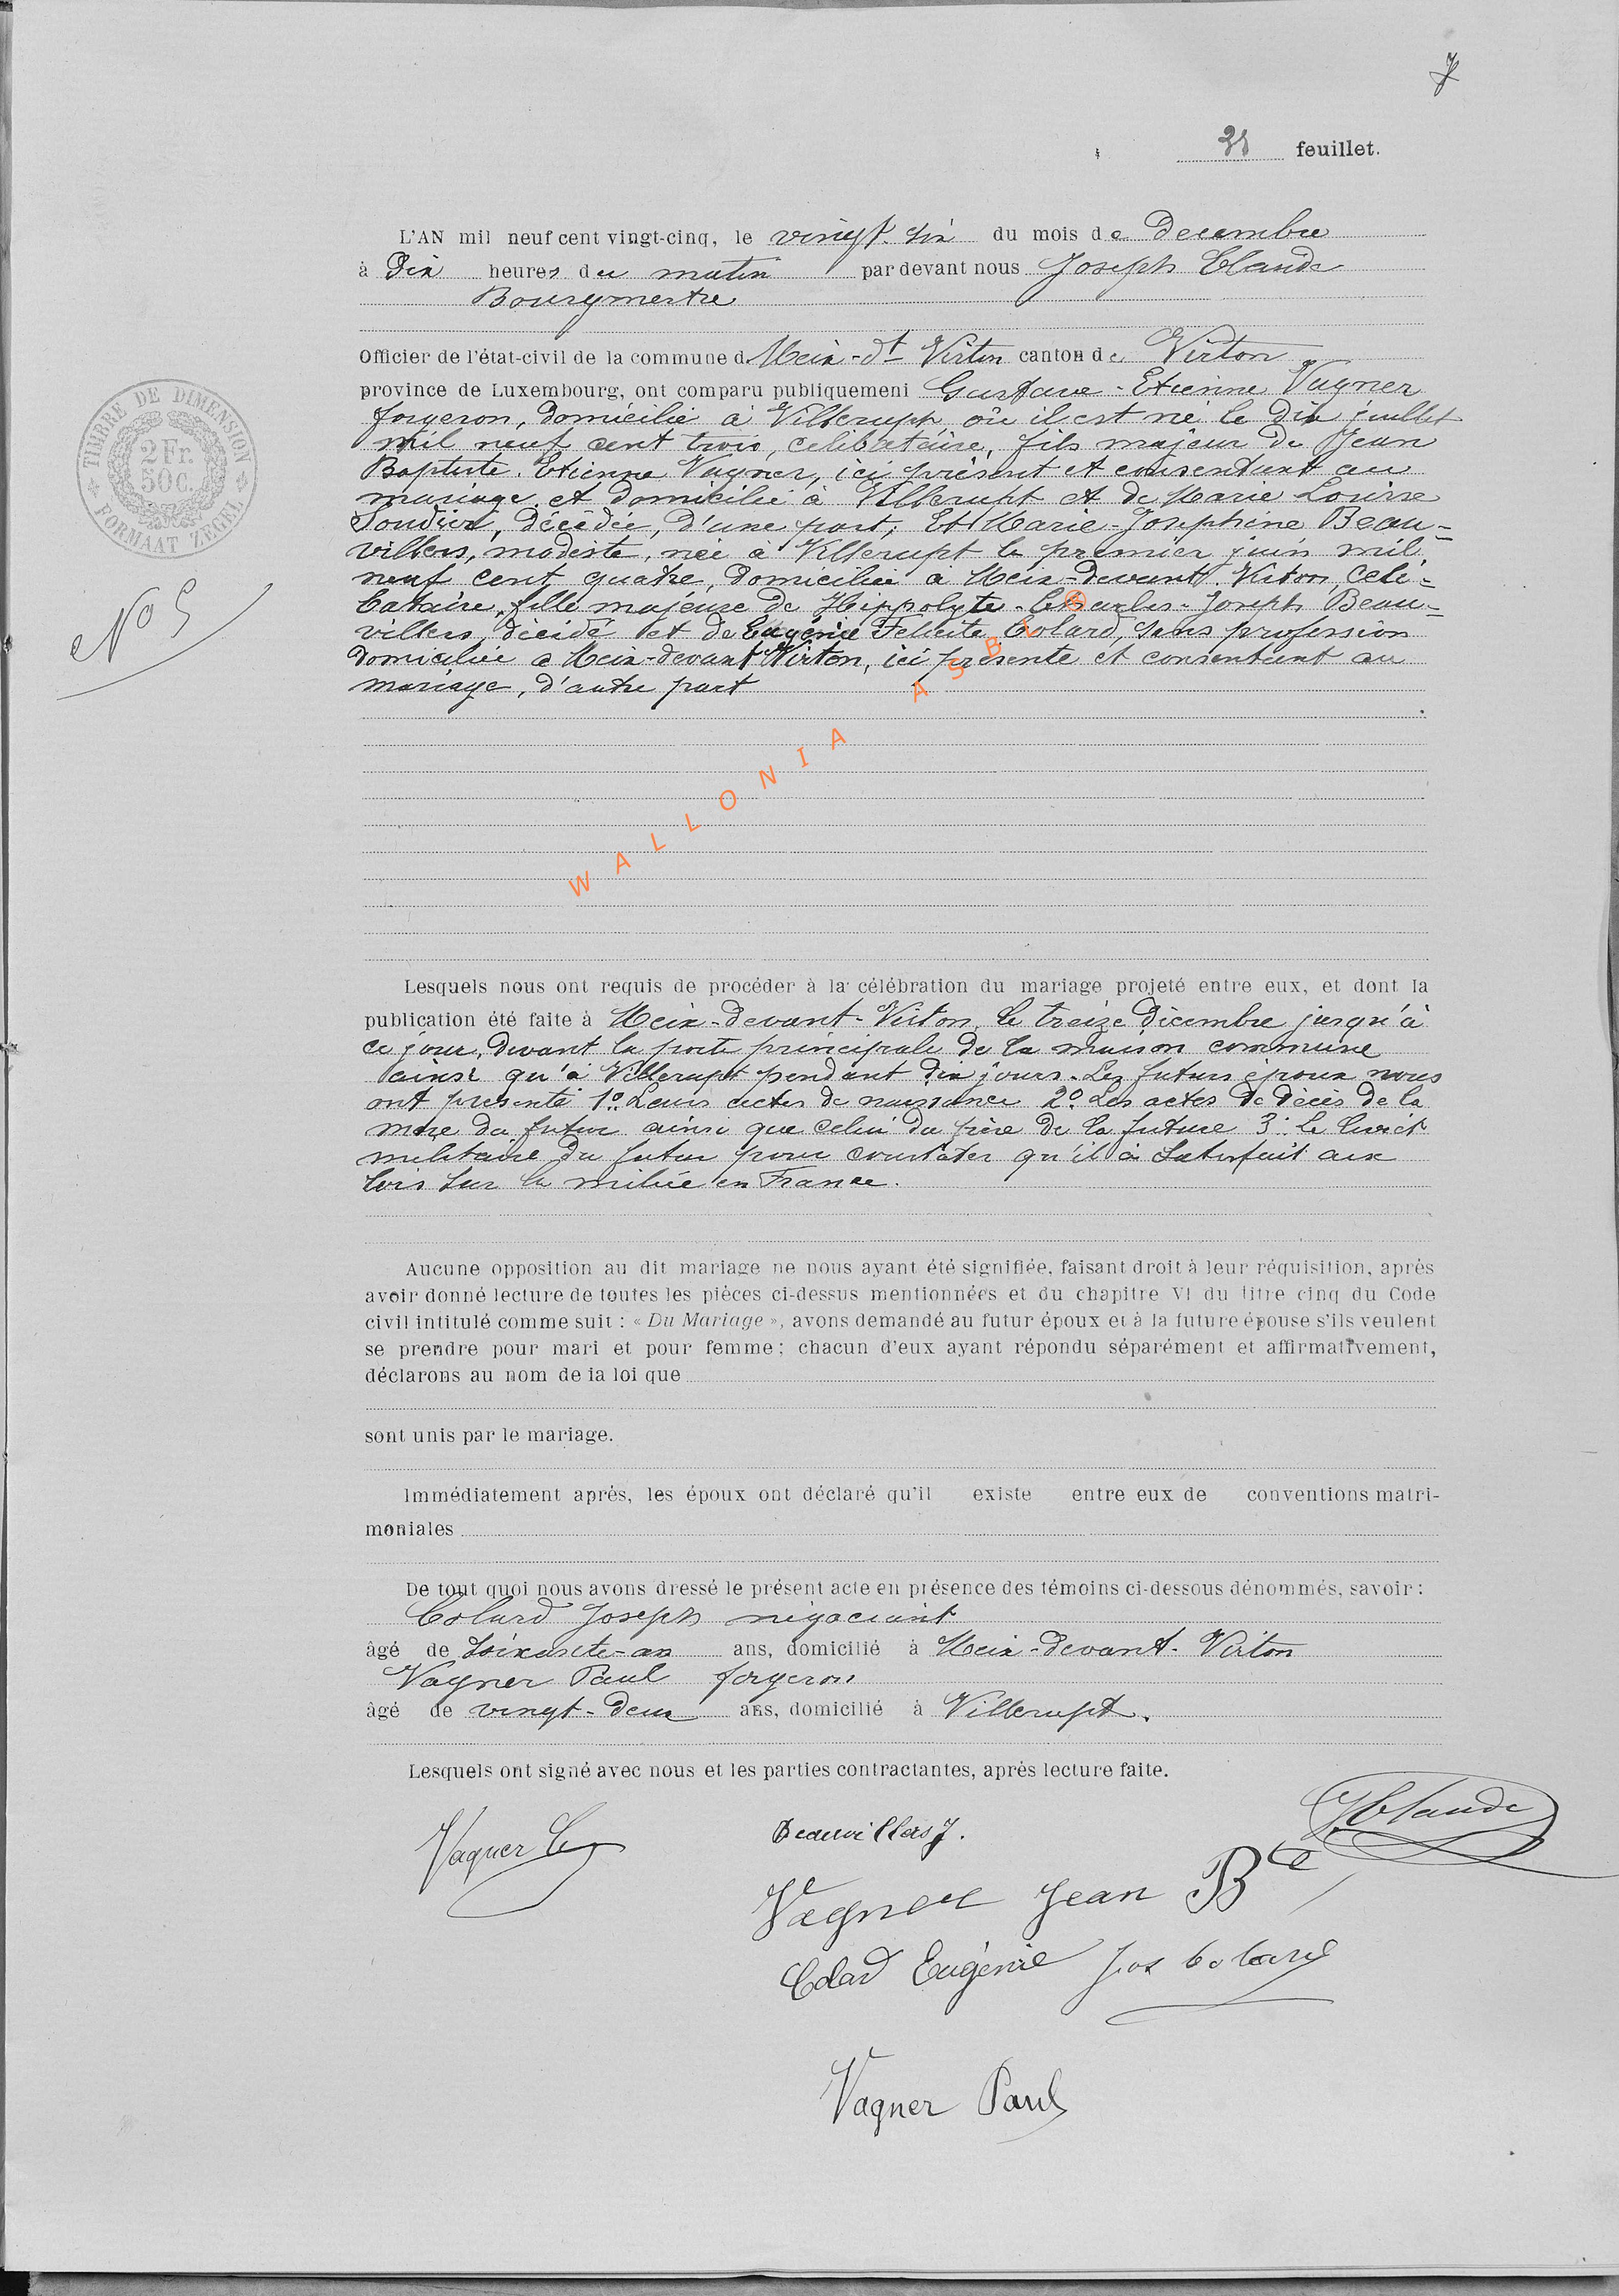 7
feuillet.
L'AN mil neuf cent vingt-cinq, le vingt-six du mois de Decembre
à Dix heures du matin par devant nous Joseph Claude
Bourgmestre
Officier de l'état-civil de la commune d Meix-dt Virton canton de Virton
province de Luxembourg, ont comparu publiquement Gustave-Etienne Vagner
forgeron, domicilié à Villerupt, où il est né le Dix juillet
mil neuf cent trois, celibataire, fils majeur de Jean
Baptiste Etienne Vagner, ici présent et consentant au
mariage et domicilié à Villerupt et de Marie Louise
décédée, d'une part; Et Marie-Josephine Beau-
villers, modiste, née à Villerupt le premier juin mil
neuf cent quatre, domiciliée à Meix-devant-Virton, Céli-
bataire, fille majeure de Hippolyte-Charles-Joseph Beau-
villers, décidé et de Eugénie Felicite Colard, sans profession
domiciliée a Meix-devant Virton, ici présente et consentant au
mariage, d'autre part
TIMBRE DE DIMENSION
2 Fr.
50 C.
FORMAAT ZEGEL
No 5
WALLONIA ASBL ®
Lesquels nous ont requis de procéder à la célébration du mariage projeté entre eux, et dont la
publication été faite à Meix-devant-Virton, le treize décembre jusqu'à
ce jour, devant la porte principale de la maison commune
ainsi qu'à Villerupt pendant dix jours. Les futurs époux nous
ont presenté 1º Leurs actes de naissance 2º Les actes de décès de la
mère du futur ainsi que celui du père de la future 3º Le livret
militaire du futur pour constater qu'il a satisfait aux
lois sur la milice en France.
Aucune opposition au dit mariage ne nous ayant été signifiée, faisant droit à leur réquisition, après
avoir donné lecture de toutes les pièces ci-dessus mentionnées et du chapitre VI du titre cinq du Code
civil intitulé comme suit : « Du Mariage », avons demandé au futur époux et à la future épouse s'ils veulent
se prendre pour mari et pour femme; chacun d'eux ayant répondu séparément et affirmativement,
déclarons au nom de la loi que
sont unis par le mariage.
Immédiatement après, les époux ont déclaré qu'il existe entre eux de conventions matri-
moniales
De tout quoi nous avons dressé le présent acte en présence des témoins ci-dessous dénommés, savoir :
Colard Joseph négociant
âgé de ans, domicilié à Meix-devant-Virton
Vagner Paul forgeron
âgé de vingt-deux ans, domicilié à Villerupt.
Lesquels ont signé avec nous et les parties contractantes, après lecture faite.
Vagner Beauvillers J. J Claude
Vagner Jean Bte
Colard Eugénie Jos Colard
Vagner Paul